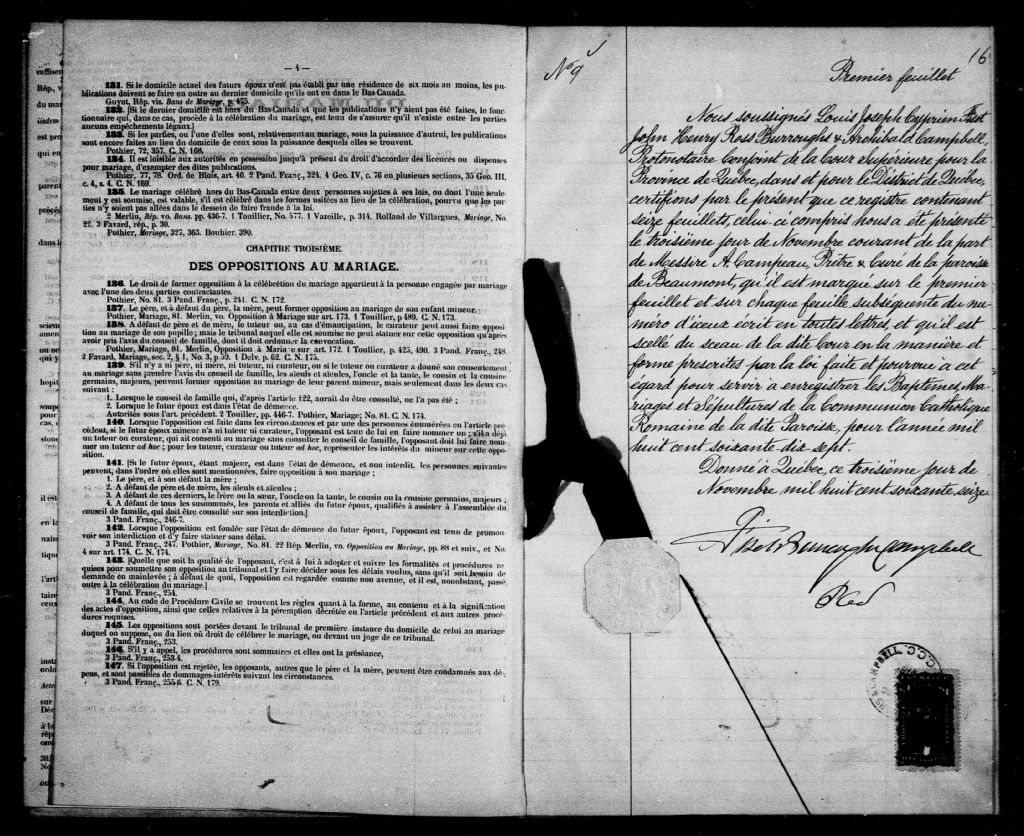 — 4 —
131. Si le domicile actuel des futurs époux n'est pas établi par une résidence de six mois au moins, les pu-
blications doivent se faire en outre au dernier domicile qu'ils ont eu dans le Bas-Canada.
Guyot, Rép. vis. Bans de Mariage, p. 475.
132. [Si le dernier domicile est hors du Bas-Canada et que les publications n'y aient pas été faites, le fonc-
tionnaire qui, dans ce cas, procède à la célébration du mariage, est tenu de s'assurer qu'il n'existe entre les parties
aucuns empêchements légaux.]
133. Si les parties, ou l'une d'elles sont, relativement au mariage, sous la puissance d'autrui, les publications
sont encore faites au lieu du domicile de ceux sous la puissance desquels elles se trouvent.
Pothier, 72, 357. C. N. 168.
134. Il est loisible aux autorités en possession jusqu'à présent du droit d'accorder des licences ou dispenses
pour mariage, d'exempter des dites publications.
Pothier, 77, 78. Ord. de Blois, art. 40. 2 Pand. Franç., 324. 4 Geo. IV, c. 76 en plusieurs sections, 35 Geo. III,
c. 4, s. 4. C. N. 169.
135. Le mariage célébré hors du Bas-Canada entre deux personnes sujettes à ses lois, ou dont l'une seule-
ment y est soumise, est valable, s'il est célébré dans les formes usitées au lieu de la célébration, pourvu que les par-
ties n'y soient pas allées dans le dessein de faire fraude à la loi.
2 Merlin, Rép. vo. Bans. pp. 436-7. 1 Touillier, No. 577. 1 Vazeille, p. 314. Rolland de Villargues, Mariage, No.
22. 3 Favard, rép., p. 30.
Pothier, Mariage, 327, 363. Bouhier. 390.
CHAPITRE TROISIÈME.
DES OPPOSITIONS AU MARIAGE.
136. Le droit de former opposition à la célébration du mariage appartient à la personne engagée par mariage
avec l'une des deux parties contractantes.
Pothier, No. 81. 3 Pand. Franç., p. 241. C. N. 172.
137. Le père, et à défaut du père, la mère, peut former opposition au mariage de son enfant mineur.
Pothier, Mariage, 81. Merlin, vo. Opposition à Mariage sur art. 173. 1 Touillier, p 489. C. N. 173.
138. A défaut de père et de mère, le tuteur ou, au cas d'émancipation, le curateur peut aussi faire opposi-
tion au mariage de son pupille; mais le tribunal auquel elle est soumise ne peut statuer sur cette opposition qu'après
avoir pris l'avis du conseil de famille, dont il doit ordonner la convocation.
Pothier, Mariage, 81. Merlin, Opposition à Mariage sur art. 172. 1 Touillier, p. 425, 490. 3 Pand. Franç., 248
2 Favard, Mariage, sec. 2, § 1, No. 3, p 59. 1 Delv. p. 62. C. N. 175.
139. S'il n'y a ni père, ni mère, ni tuteur, ni curateur, ou si le tuteur ou curateur a donné son consentement
au mariage sans prendre l'avis du conseil de famille, les aïeuls et aïeules, l'oncle et la tante, le cousin et la cousine
germains, majeurs, peuvent former opposition au mariage de leur parent mineur, mais seulement dans les deux cas
suivant:
1. Lorsque le conseil de famille qui, d'après l'article 122, aurait du être consulté, ne l'a pas été;
2. Lorsque le futur époux est dans l'état de démence.
Autorités sous l'art. précédent 2 Touiller, pp. 446-7. Pothier, Mariage; No. 81. C. N. 174.
140. Lorsque opposition est faite dans les circonstances et par une des personnes énumérées en l'article pré-
cédent, si le futur époux mineur n'a ni tuteur ni curateur, l'opposant est tenu de lui en faire nommer un; s'il a déjà
un tuteur ou curateur, qui ait consenti au mariage sans consulter le conseil de famille, l'opposant doit lui faire nom-
mer un tuteur ou curateur ad hoc; pour les tuteur, curateur ou tuteur ad hoc, représenter les intérêts du mineur sur cette oppo-
sition.
141. [Si le futur époux, étant majeur, est dans l'état de démence, et non interdit, les personnes suivantes
peuvent, dans l'ordre où elles sont mentionnées, faire opposition à son mariage;
1. Le père, et à son défaut la mère;
2. A défaut de père et de mère, les aïeuls et aïeules;
3. A défaut de ces derniers, le frère ou la sœur, l'oncle ou la tante, le cousin ou la cousine germains, majeurs;
4. A défaut de tous les susnommés, les parents et alliés du futur époux, qualifiés à assister à l'assemblée du
conseil de famille, qui doit être consulté sur son interdiction.]
3 Pand. Franç., 246-7.
142. Lorsque l'opposition est fondée sur l'état de démence du futur époux, l'opposant est tenu de promou-
voir son interdiction et d'y faire statuer sans délai.
3 Pand. Franç., 247. Pothier, Mariage, No. 81. 22 Rép. Merlin, vo. Opposition au Mariage, pp. 88 et suiv., et No.
4 sur art. 174. C. N. 174.
143. [Quelque que soit la qualité de l'opposant, c'est à lui à adopter et suivre les formalités et procédures re-
quises pour soumettre son opposition au tribunal et l'y faire décider sous les délais voulus, sans qu'il soit besoin de
demande en mainlevée; à défaut de quoi, l'opposition est regardée comme non avenue, et il est, nonobstant, passé
outre à la célébration du mariage.]
3 Pand. Franç., 254.
144. Au code de Procédure Civile se trouvent les règles quant à la forme, au contenu et à la signification
des actes d'opposition, ainsi que celles relatives à la péremption décrétée en l'article précédent et aux autres procé-
dures requises.
145. Les oppositions sont portées devant le tribunal de première instance du domicile de celui au mariage
duquel on suppose, ou du lieu où droit de célébrer le mariage, ou devant un joge de ce tribunal.
3 Pand. Franç., 253.
146. S'il y a appel, les procédures sont sommaires et elles ont la préséance,
3 Pand. Franç., 253-4.
147. Si l'opposition est rejetée, les opposants, autres que le père et la mère, peuvent être condamnés aux dé-
pens, et sont passibles de dommages-intérêts suivant les circonstances.
3 Pand. Franç., 255-6. C. N. 179.
No 9
16
Premier feuillet
Nous soussignés Louis Joseph Cyprien Fiset
John Henry Ross Burroughs & Archibald Campbell,
Protonotaire Conjoint de la Cour Supérieure pour la
Province de Québec, dans et pour le District de Québec,
certifions par le présent que ce registre contenant
seize feuillets, celui ci compris nous a été présenté
le troisième jour de Novembre courant de la part
de Messire A. Campeau, Prêtre & Curé de la paroisse
de Beaumont, qu'il est marqué sur le premier
feuillet et sur chaque feuille subséquente du nu-
mero d'iceux écrit en toutes lettres, et qu'il est
scellé du sceau de la dite Cour en la manière et
forme prescrites par la loi faite et pourvue à cet
égard pour servir à enregistrer les Baptêmes, Ma-
riages et Sépultures de la Communion Catholique
Romaine de la dite Paroisse, pour l'année mil
huit cent soixante dix sept.
Donné à Québec, ce troisième jour de
Novembre mil huit cent soixante seize
Fiset Burroughs Campbell
CAMPBELL. C.C.C.